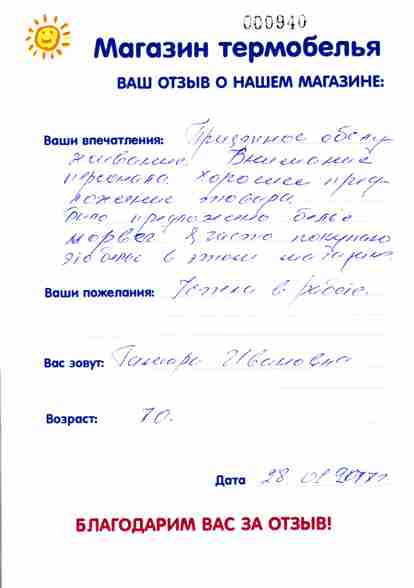 000940
Магазин термобелья
ВАШ ОТЗЫВ О НАШЕМ МАГАЗИНЕ:
Ваши впечатления: Приятное обслу
живание. Внимание
персонала. Хорошее пред
ложение товара.
Было предложено белье
норвег Я часто покупаю
в этом магазине
Ваши пожелания: Успеха в работе.
Вас зовут: Тамара Ивановна
Возраст: 70.
Дата 28. 01 2017г
БЛАГОДАРИМ ВАС ЗА ОТЗЫВ!